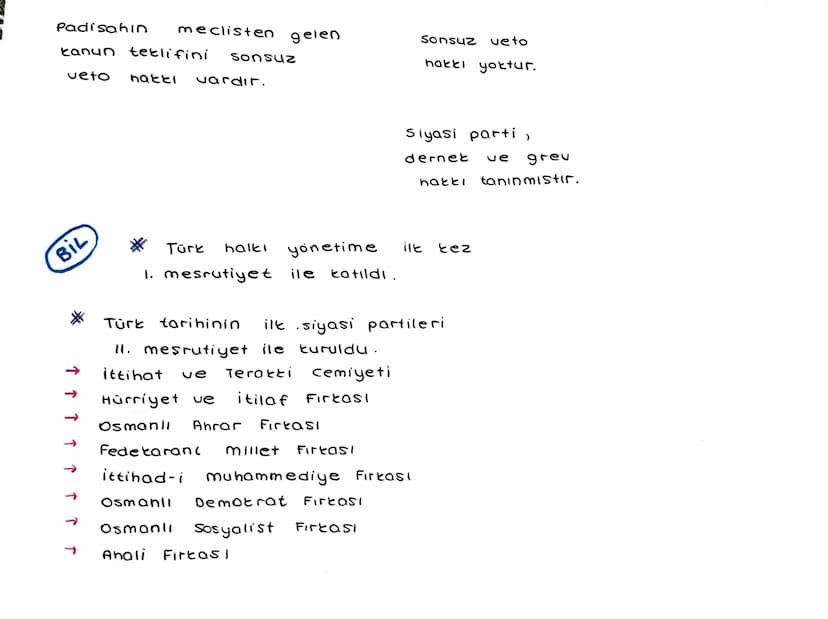 Padişahın meclisten gelen
kanun teklifini sonsuz
veto hakkı vardır.
sonsuz veto
hakkı yoktur.
Siyasi parti,
dernek ve grev
hakkı tanınmıştır.
BİL
* Türk halkı yönetime ilk kez
I. mesrutiyet ile katıldı.
* Türk tarihinin ilk siyasi partileri
II. meşrutiyet ile kuruldu.
→ İttihat ve Terakki Cemiyeti
→ Hürriyet ve itilaf Fırkası
→ Osmanlı Ahrar Fırkası
→ Fedekaranı Millet Fırkası
→ İttihad-i muhammediye Fırkası
→ Osmanlı Demokrat Fırkası
→ Osmanlı Sosyalist Fırkası
→ Ahali Fırkası